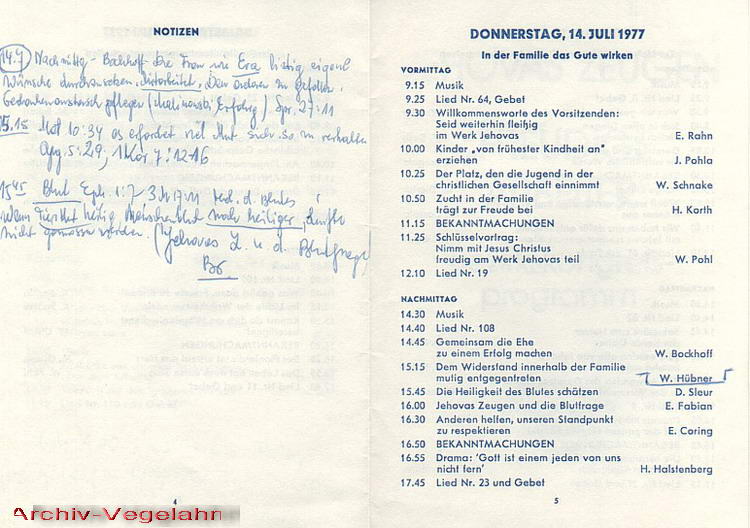 NOTIZEN
14.7 Nachmittg - Bockhoff die Frau wie Eva listig eigene
Wünsche durchzusetzen,
dem anderen zu gefallen.
Gedankenaustausch pflegen ( Erfolg) Spr. 27:11
15.15 Mat 10:34 es erfordert viel Mut sich so zu verhalten
Apg. 5:29, 1 Kor 7:12-16
15.45 Blut Eph. 1:7, 3 M 17:11 d. Blutes
heilig Menschenblut noch heiliger, durfte
nicht genossen werden. (Jehovas Z. u. d. Blutfrage)
Br.
4
Archiv-Vegelahn
DONNERSTAG, 14. JULI 1977
In der Familie das Gute wirken
VORMITTAG
9.15 Musik
9.25 Lied Nr. 64, Gebet
9.30 Willkommensworte des Vorsitzenden:
Seid weiterhin fleißig
im Werk Jehovas E. Rahn
10.00 Kinder „von frühester Kindheit an"
erziehen J. Pohla
10.25 Der Platz, den die Jugend in der
christlichen Gesellschaft einnimmt W. Schnake
10.50 Zucht in der Familie
trägt zur Freude bei H. Korth
11.15 BEKANNTMACHUNGEN
11.25 Schlüsselvortrag:
Nimm mit Jesus Christus
freudig am Werk Jehovas teil W. Pohl
12.10 Lied Nr. 19
NACHMITTAG
14.30 Musik
14.40 Lied Nr. 108
14.45 Gemeinsam die Ehe
zu einem Erfolg machen W. Bockhoff
15.15 Dem Widerstand innerhalb der Familie
mutig entgegentreten W. Hübner
15.45 Die Heiligkeit des Blutes schätzen D. Sleur
16.00 Jehovas Zeugen und die Blutfrage E. Fabian
16.30 Anderen helfen, unseren Standpunkt
zu respektieren E. Coring
16.50 BEKANNTMACHUNGEN
16.55 Drama: 'Gott ist einem jeden von uns
nicht fern' H. Halstenberg
17.45 Lied Nr. 23 und Gebet
5